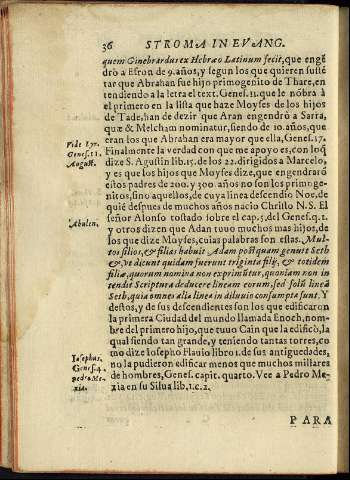 36 STROMA IN EVANG.
quem Ginebrardus ex Hebræo Latinum fecit, que engẽ
drò a Esron de 9. años, y segun los que quieren sustẽ
tar que Abrahan fue hijo primogenito de Thare, en
tendiendo a la letra el text. Genes. 11. que le nõbra à
el primero en la lista que haze Moyses de los hijos
de Tade, han de dezir que Aran engendrò a Sarra,
quæ & Melcham nominatur, siendo de 10. años, que
eran los que Abrahan era mayor que ella, Genes. 17.
Vide Lyr.
Genes. 11.
August.
Finalmente la verdad con que me apoyo es, con loq̃
dize S. Agustin lib. 15. de los 22. dirigidos a Marcelo,
y es que los hijos que Moyses dize, que engendrarõ
estos padres de 200. y 300. años no son los primoge-
nitos, sino aquellos, de cuya linea descendio Noe, de
quiẽ despues de muchos años nacio Christo N. S. El
Abulen.
señor Alonso tostado sobre el cap. 5. del Genes. q. 1.
y otros dizen que Adan tuuo muchos mas hijos, de
los que dize Moyses, cuias palabras son estas. Mul-
tos filios, & filias habuit Adam postquam genuit Seth
& vt dicunt quidam fuerunt triginta filij, & totidem
filiæ, quorum nomina non exprimũtur, quoniam non in
tendit Scriptura deducere lineam eorum, sed solũ lineã
Seth, quia omnes aliæ lineæ in diluuio consumptæ sunt. Y
destos, y de sus descendientes son los que edificaron
la primera Ciudad del mundo llamada Enoch, nom-
bre del primero hijo, que tuuo Cain que la edificò, la
qual siendo tan grande, y teniendo tantas torres, co
Iosephus.
Genes. 4.
Pedro Me-
xia.
mo dize Iosepho Flauio libro 1. de sus antiguedades,
no la pudieron edificar menos que muchos millares
de hombres, Genes. capit. quarto. Vee a Pedro Me-
xia en su Silua lib. 1. c. 2.
PARA